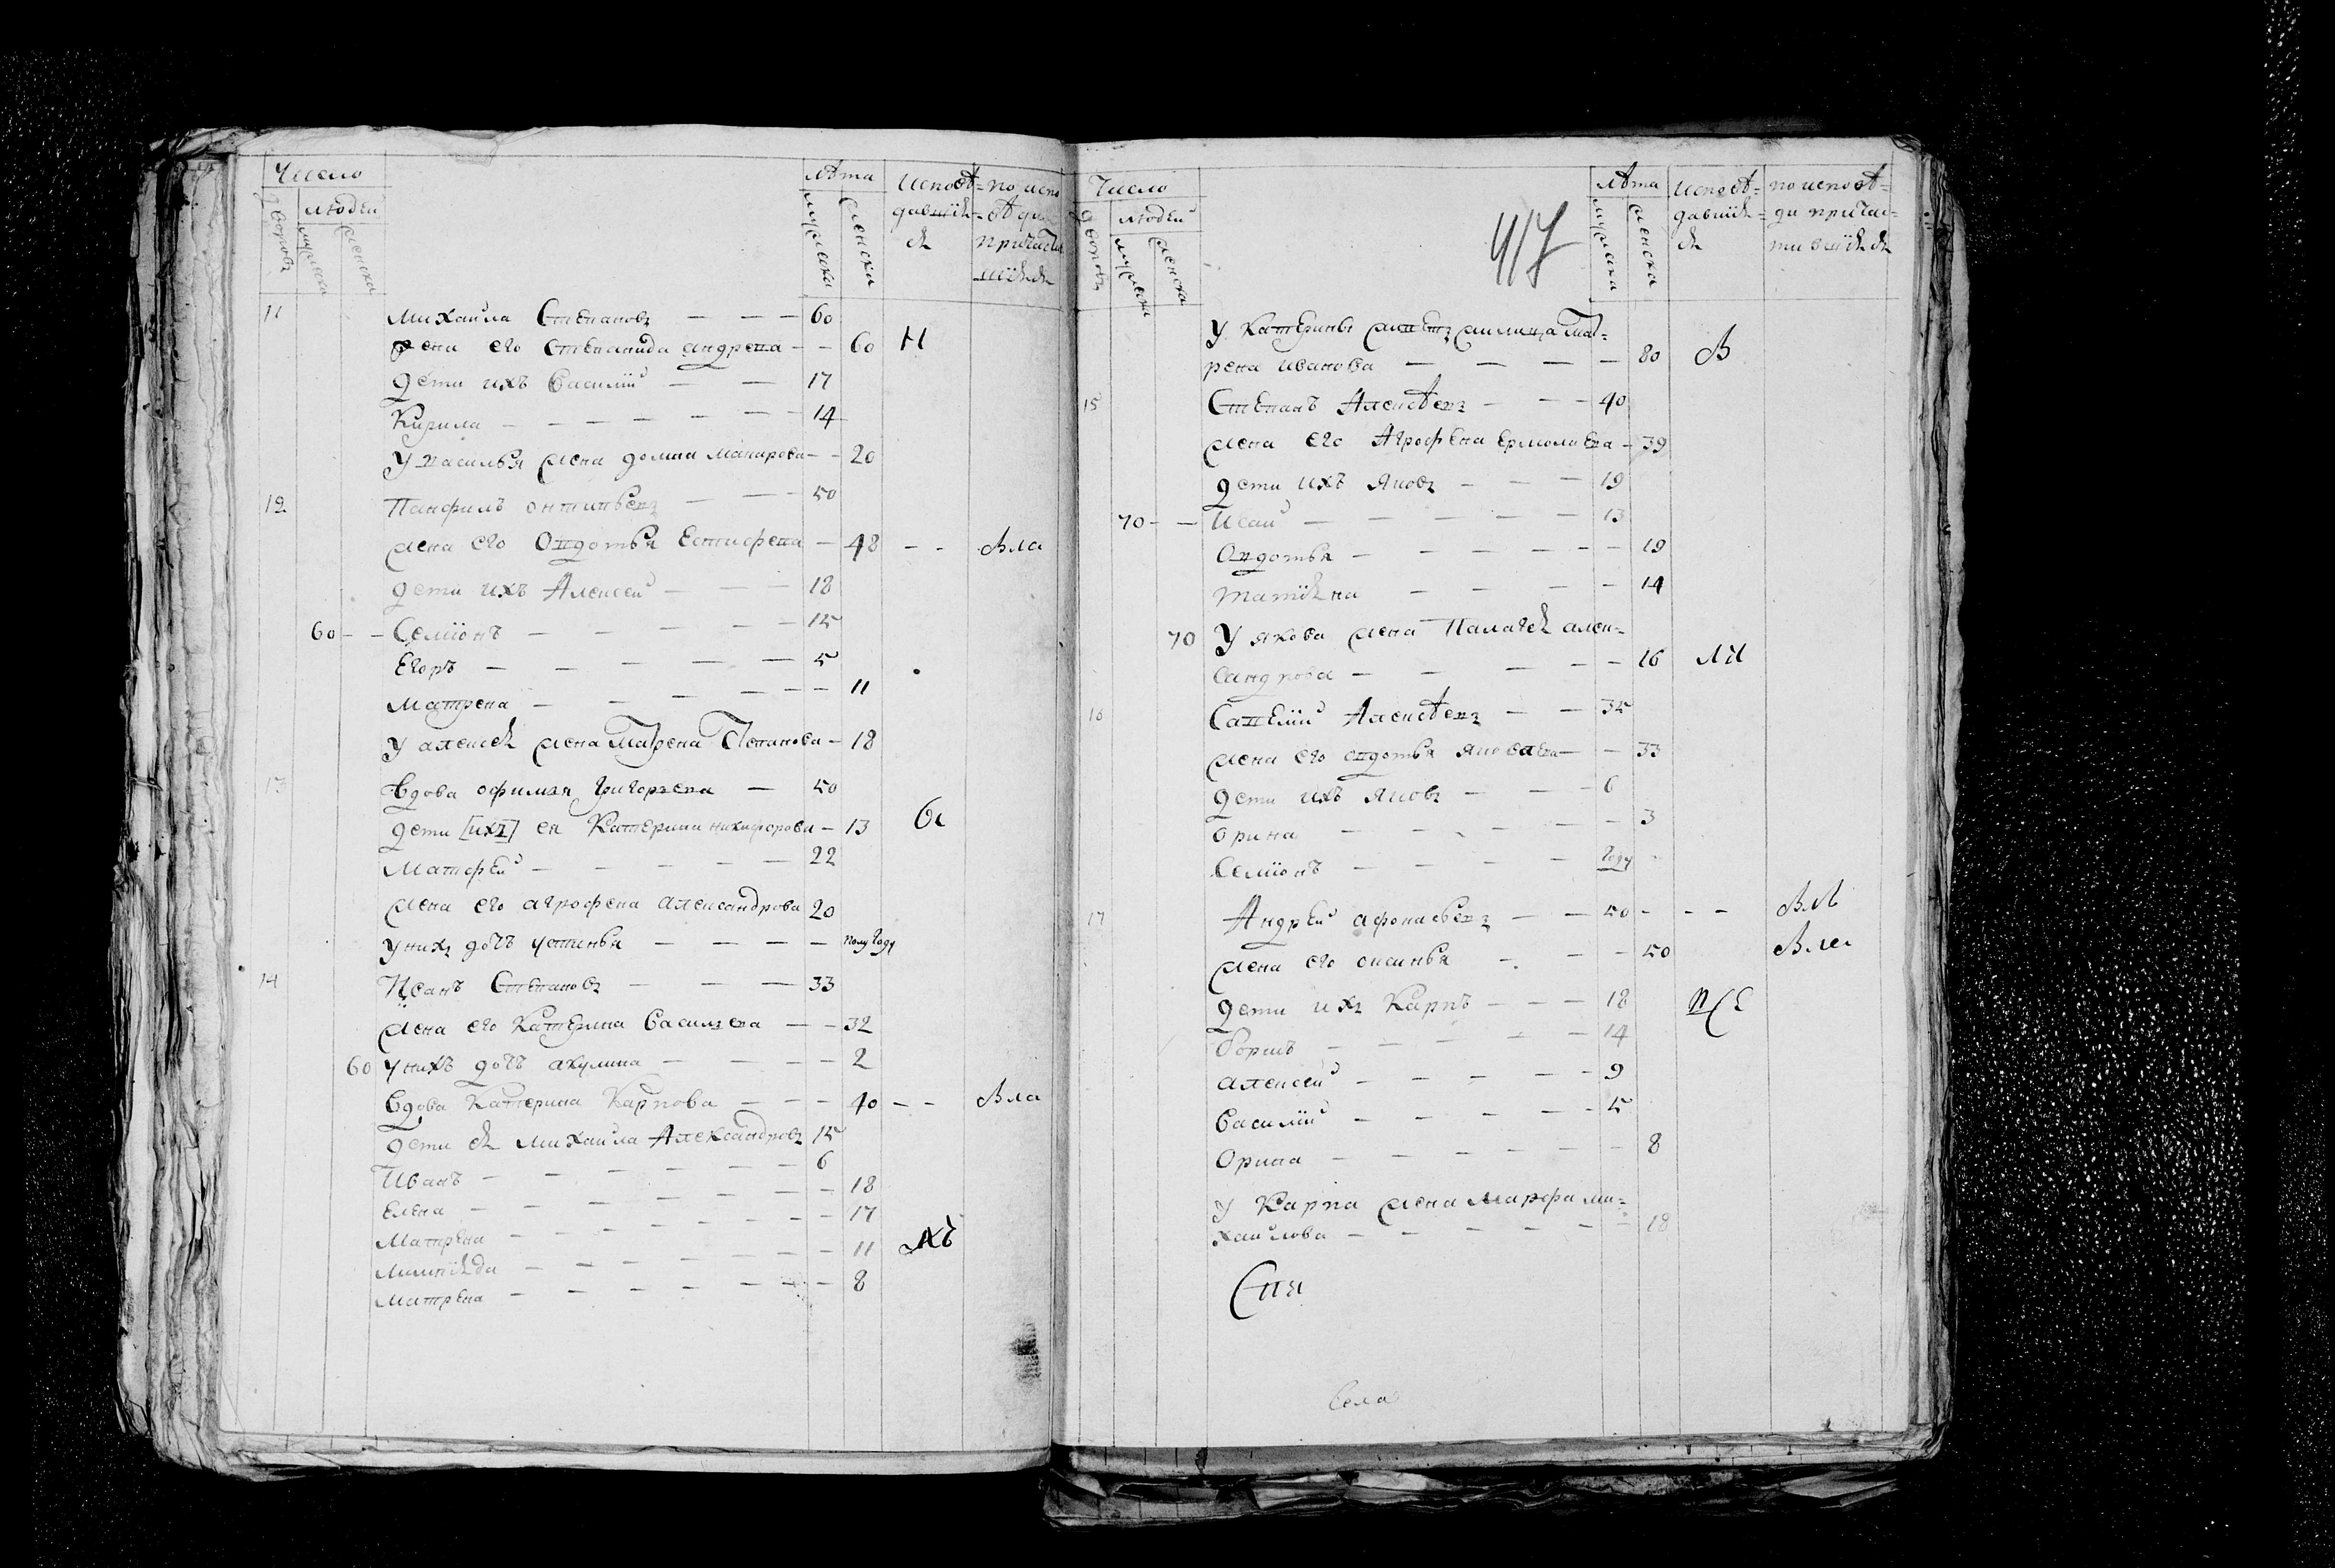 Число
дворовъ
людей
мужска
женска
лѣта
мужска
женска
исповѣ=
давшïѧ=
сѧ
по испо
вѣди
причаст
шïѧсѧ
11 михаила Степановъ — — — 60
жена его Степанида андреева — — 60 Н
дети ихъ Василïй — — 17
Кирила — — — — — 14
У василья жена домна макарова — — 20
12 Панфилъ онтипьевъ — — — 50
жена его Овдотья Естифеева — 48 — — Вла
дети ихъ Алексей — — — 18
60 — — Семïонъ — — — — — 15
Егоръ — — — — — 5
матрена — — — — — — 11
у алексеѧ жена Матрена Степанова — 18
13 Вдова офимья григорьева — 50
дети [ихъ] ея Катерина никифорова — 13
Матфей — — — — — 22
жена его агрофена александрова 20
у нихъ дочь устинья — — — — полугоду
14 Иванъ Степановъ — — — 33
жена его Катерина Васильева — — 32
60 у нихъ дочь акулина — — — — 2
Вдова Катерина Карпова — — — 40 — — Вла
дети еѧ михаила Александровъ 15
Иванъ — — — — — — 6
Елена — — — — — — 18
Матрена — — — — — — 17
— — — — — — 11
матрена — — — — — — 8
Число
дворовъ
людей
мужска
женска
417
лѣта
мужска
женска
исповѣ=
давшïѧ=
сѧ
по исповѣ=
ди причас=
тившïѧсѧ
У Катерины Мат=
рена иванова — — — — 80 В
15 Степанъ Алексѣевъ — — — 40
жена его Агрофена Ермолаева — 39
дети ихъ Яковъ — — — 19
70 — — Исай — — — — — 13
Овдотья — — — — — — 19
татïѧна — — — — 14
70 У якова жена Палагеѧ алек=
сандрова — — — — — 16
16 Савелïй Алексѣевъ — — 35
жена его овдотья яковлева — — 33
дети ихъ Яковъ — — — 6
орина — — — — — — 3
Семïонъ — — — — году
17 Андрей афонасьевъ — — 50 — — —
жена его аксинья — — — 50
дети ихъ Карпъ — — — 18
Борисъ — — — — — 14
алексей — — — — — 9
василïй — — — — — 5
Орина — — — — — — 8
у Карпа жена марфа ми=
хайлова — — — — — 18
Села